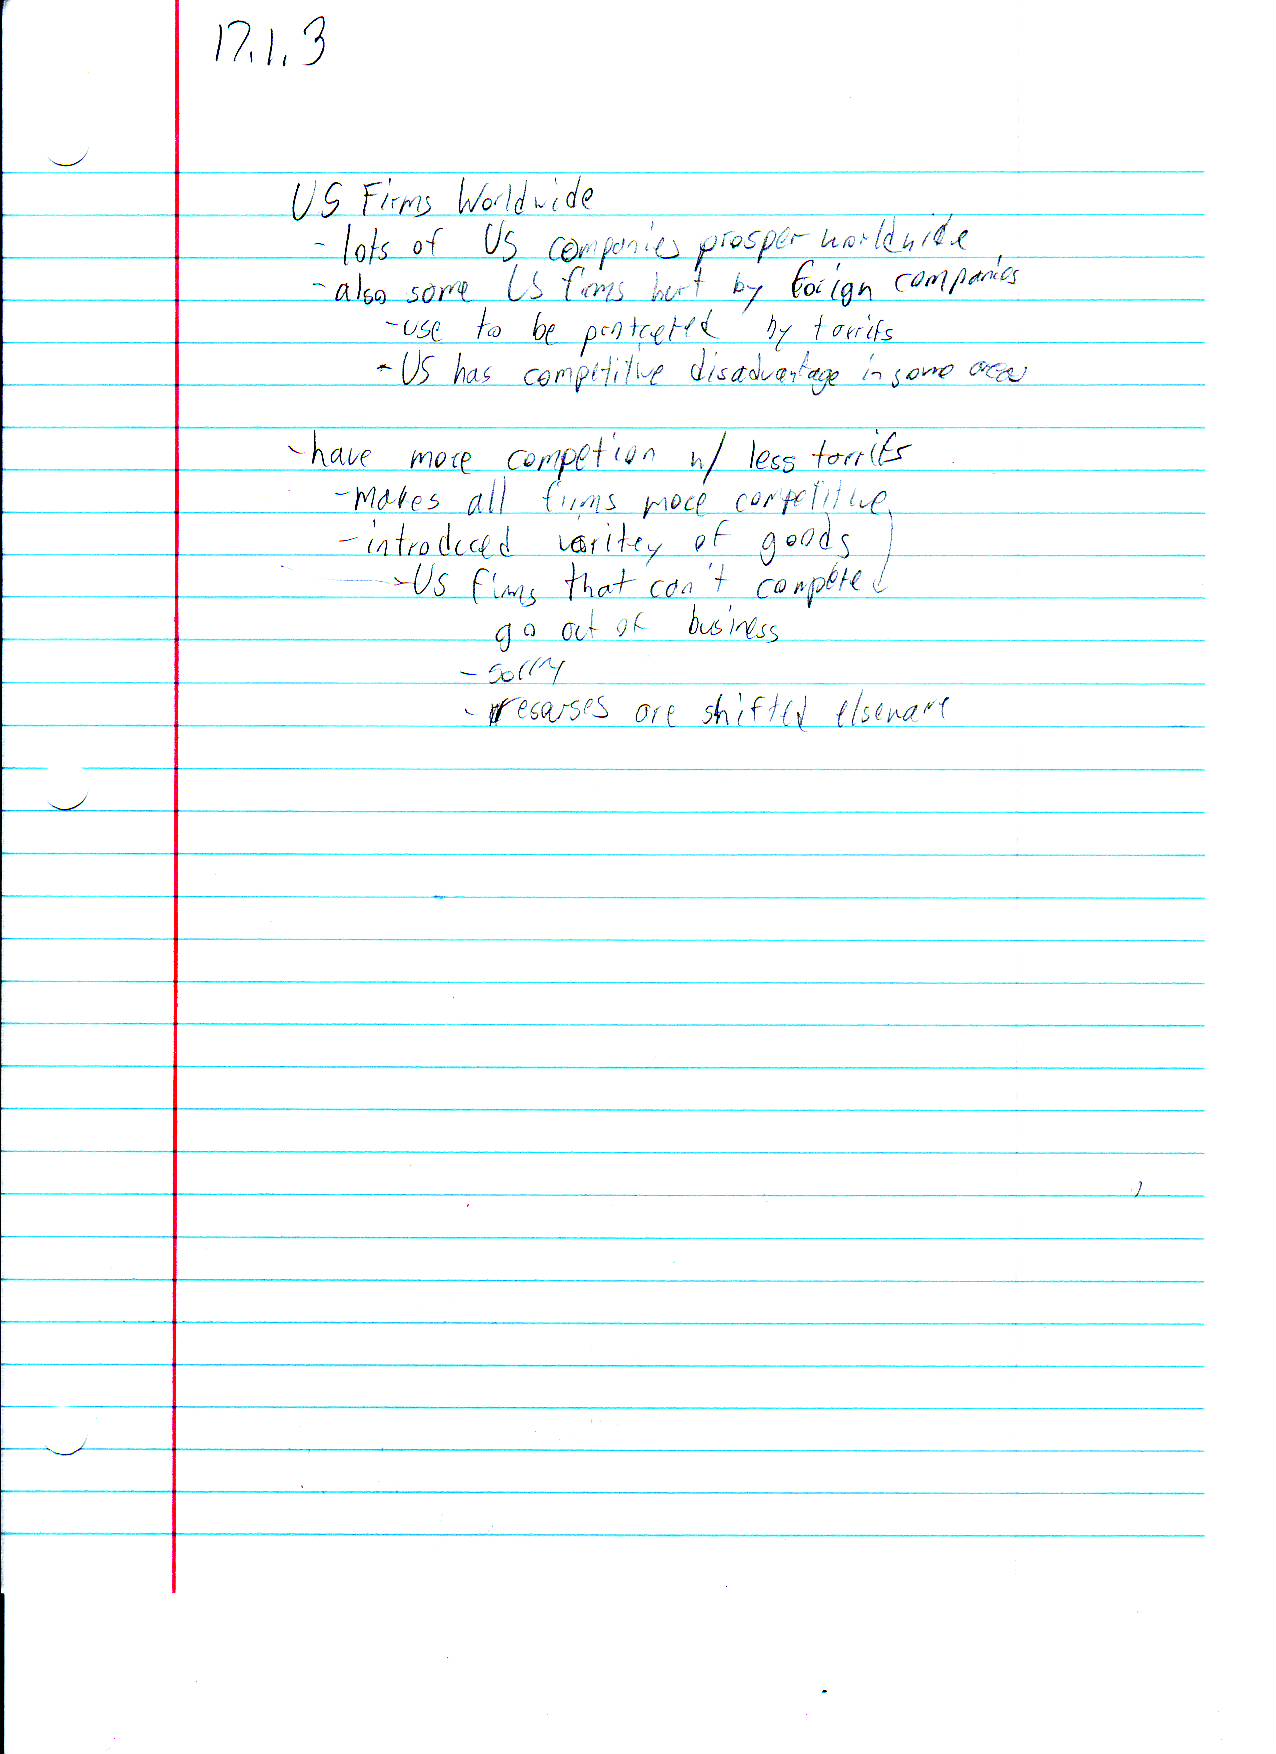 17.1.3
US Firms Worldwide
- lots of US companies prosper worldwide
- also some US firms hurt by foriegn companies
- use to be protected by torrifs
- US has competitive disadvantage in some areas
- have more competion w/ less torrifs
- makes all firms more competitive
- introduced varitey of goods
- US firms that can't compete
go out of business
- sorry
- resourses are shifted elseware